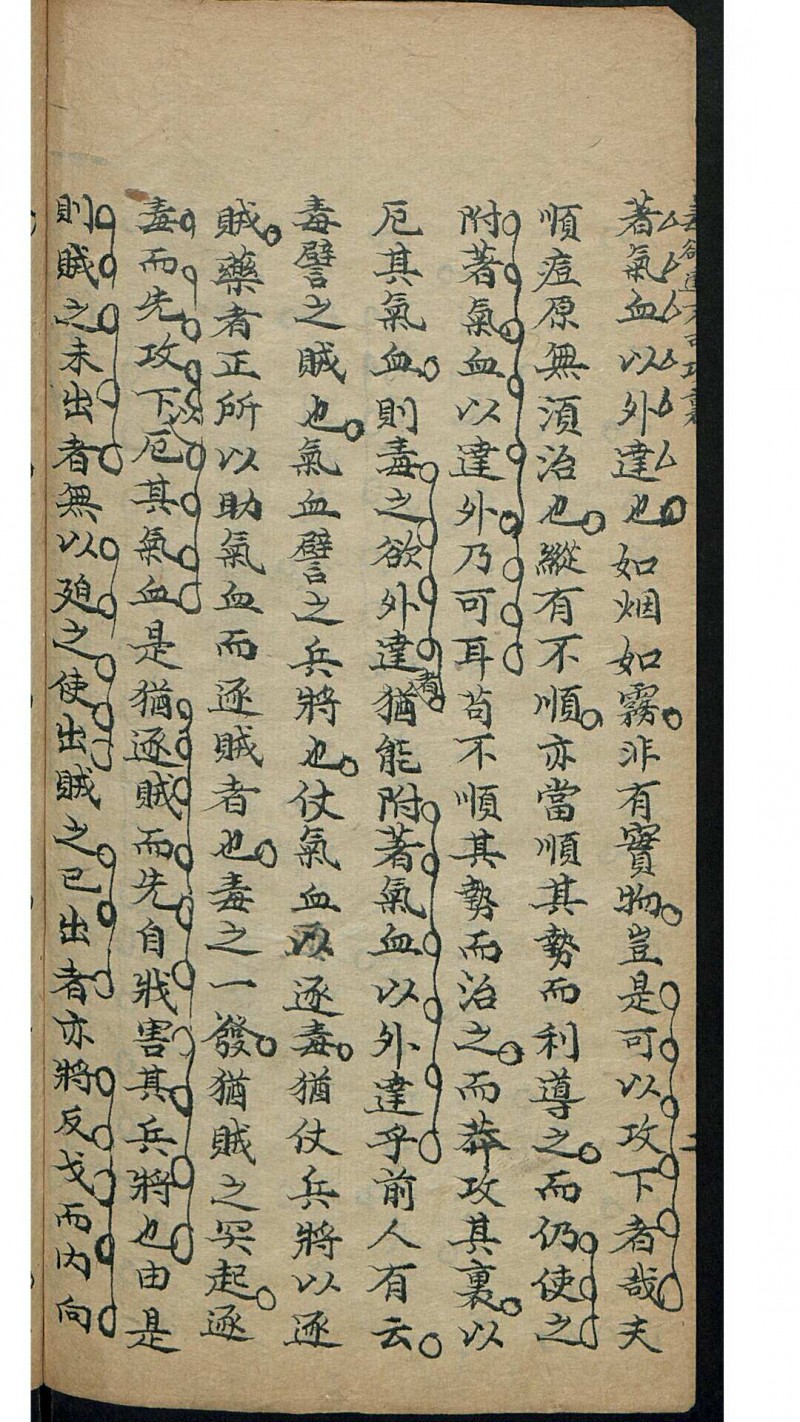 著氣血以外達也如烟如霧非有實物豈是可以攻下者哉夫
順痘原無須治也縱有不順亦當順其勢而利導之而仍使之
附著氣血以達外乃可耳苟不順其勢而治之而莽攻其裏以
厄其氣血則毒之欲外達者猶能附著氣血以外達乎前人有云
毒譬之賊也氣血譬之兵將也仗氣血以逐毒猶仗兵將以逐
賊藥者正所以助氣血而逐賊者也毒之一發猶賊之哭起逐
毒而先攻下以厄其氣血是猶逐賊而先自戕害其兵將也由是
則賊之未出者無以廹之使出賊之已出者亦將反戈而內向